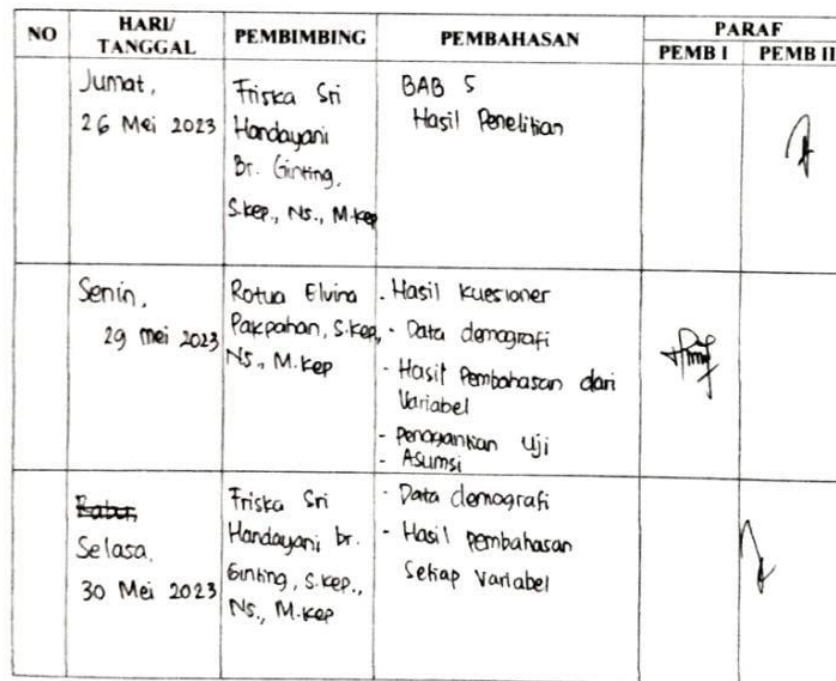 NO HARI/ TANGGAL PEMBIMBING PEMBAHASAN PARAF
PEMB I PEMB II
Jumat,
26 Mei 2023
Friska Sri
Handayani
Br. Ginting,
S.kep., Ns., M.kep
BAB 5
Hasil Penelitian
Senin,
29 Mei 2023
Rotua Elvina
Pakpahan, S.kep,
Ns., M.kep
- Hasil kuesioner
- Data demografi
- Hasil Pembahasan dari
Variabel
- uji
- Asumsi
Selasa,
30 Mei 2023
Friska Sri
Handayani br.
Ginting, S.kep.,
Ns., M.kep
- Data demografi
- Hasil pembahasan
Setiap Variabel